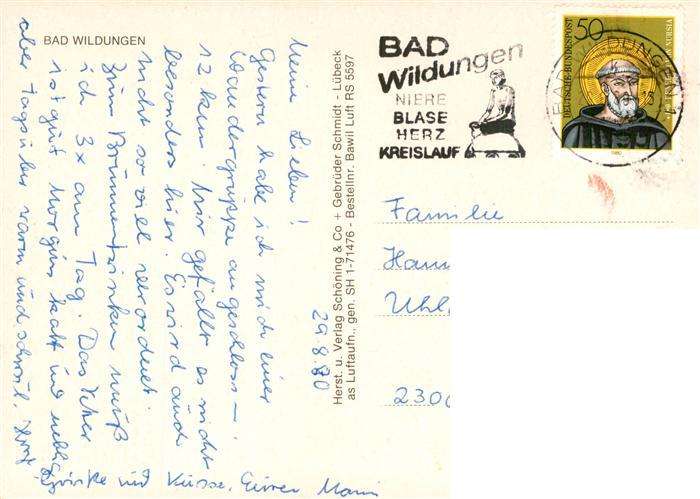 BAD WILDUNGEN
29.8.80
Meine Lieben!
Gestern habe ich mich einer
Wandergruppe angeschlossen –
12 km. Mir gefällt es nicht
besonders hier. Es wird auch
nicht so viel verordnet.
Zum Brunnentrinken muß
ich 3x am Tag. Das
ist gut. Morgens kalt und neblig
aber tagsüber warm und schwül.
Grüße und Küsse, Eure
Herst. u. Verlag Schöning & Co + Gebrüder Schmidt - Lübeck
as Luftaufn., gen. SH 1-71476 - Bestellnr. Bawil Luft RS 5597
BAD
Wildungen
NIERE
BLASE
HERZ
KREISLAUF
50
DEUTSCHE BUNDESPOST
NURSIA
1980
BAD WILDUNGEN
Familie
Uhl
2300